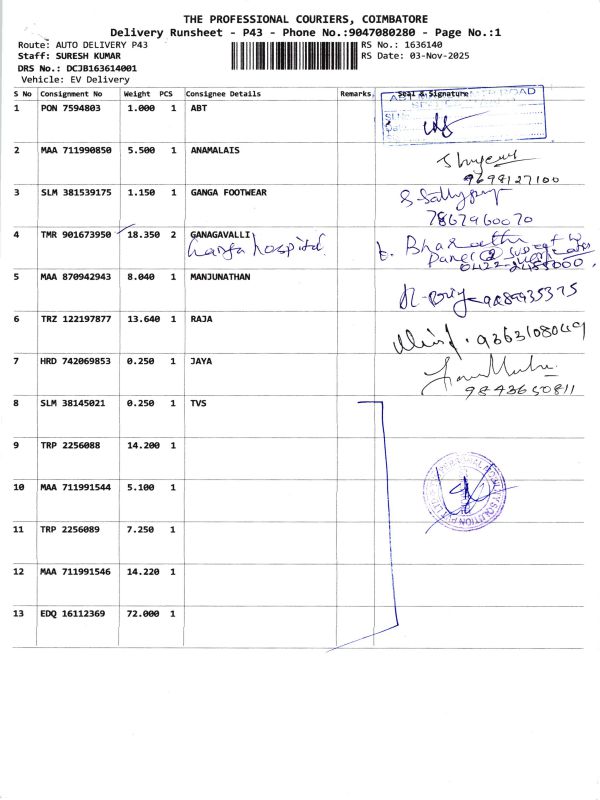 THE PROFESSIONAL COURIERS, COIMBATORE
Delivery Runsheet - P43 - Phone No.:9047080280 - Page No.:1
Route: AUTO DELIVERY P43 RS No.: 1636140
Staff: SURESH KUMAR RS Date: 03-Nov-2025
DRS No.: DCJB163614001
Vehicle: EV Delivery
S No Consignment No Weight PCS Consignee Details Remarks Seal & Signature
1 PON 7594803 1.000 1 ABT
2 MAA 711990850 5.500 1 ANAMALAIS
9698127100
3 SLM 381539175 1.150 1 GANGA FOOTWEAR
7867960070
4 TMR 901673950 18.350 2 GANAGAVALLI
Ganga hospital
5 MAA 870942943 8.040 1 MANJUNATHAN
6 TRZ 122197877 13.640 1 RAJA
9363108049
7 HRD 742069853 0.250 1 JAYA
9843650811
8 SLM 38145021 0.250 1 TVS
9 TRP 2256088 14.200 1
10 MAA 711991544 5.100 1
11 TRP 2256089 7.250 1
12 MAA 711991546 14.220 1
13 EDQ 16112369 72.000 1